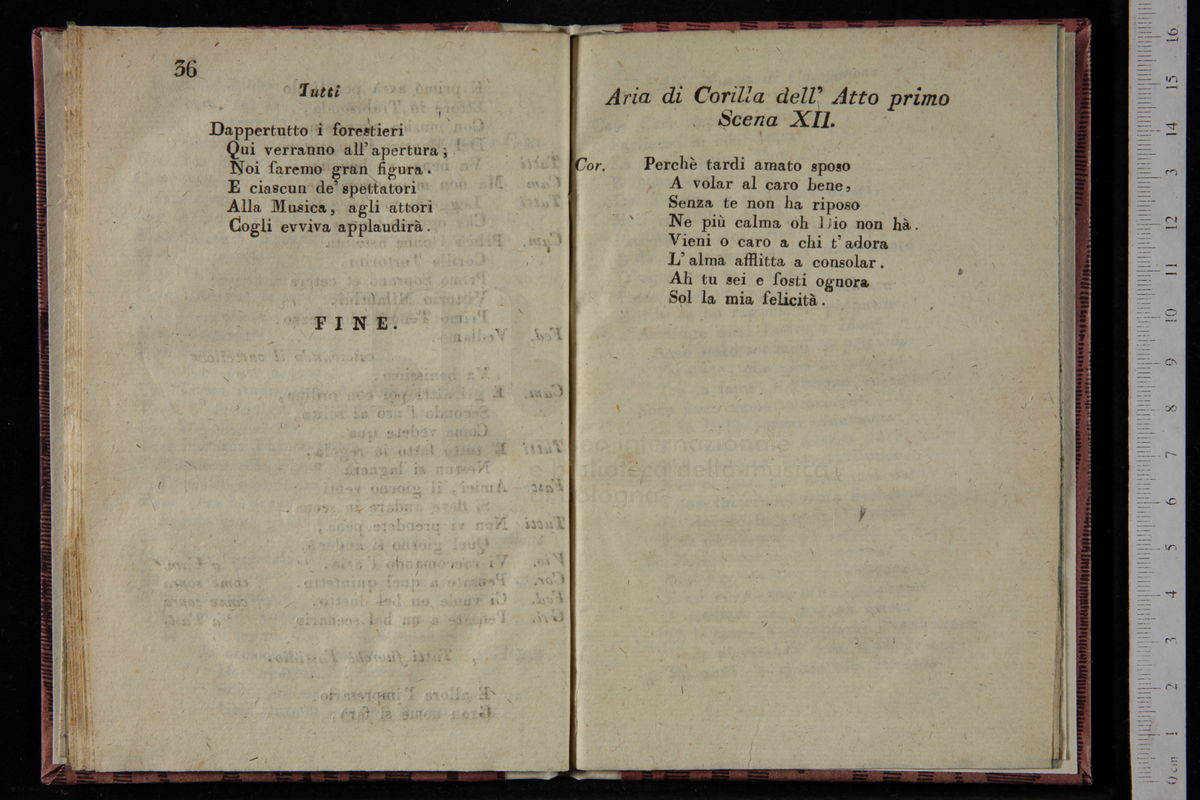 36
Tutti
Dappertutto i forestieri
Qui verranno all' apertura;
Noi faremo gran figura.
E ciascun de' spettatori
Alla Musica, agli attori
Cogli evviva applaudirà.
FINE.
Aria di Corilla dell' Atto primo
Scena XII.
Cor. Perchè tardi amato sposo
A volar al caro bene,
Senza te non ha riposo
Ne più calma oh Dio non hà.
Vieni o caro a chi t' adora
L' alma afflitta a consolar.
Ah tu sei e fosti ognora
Sol la mia felicità.
internazionale
e biblioteca della musica
di Bologna
0 cm 1 2 3 4 5 6 7 8 9 10 11 12 13 14 15 16